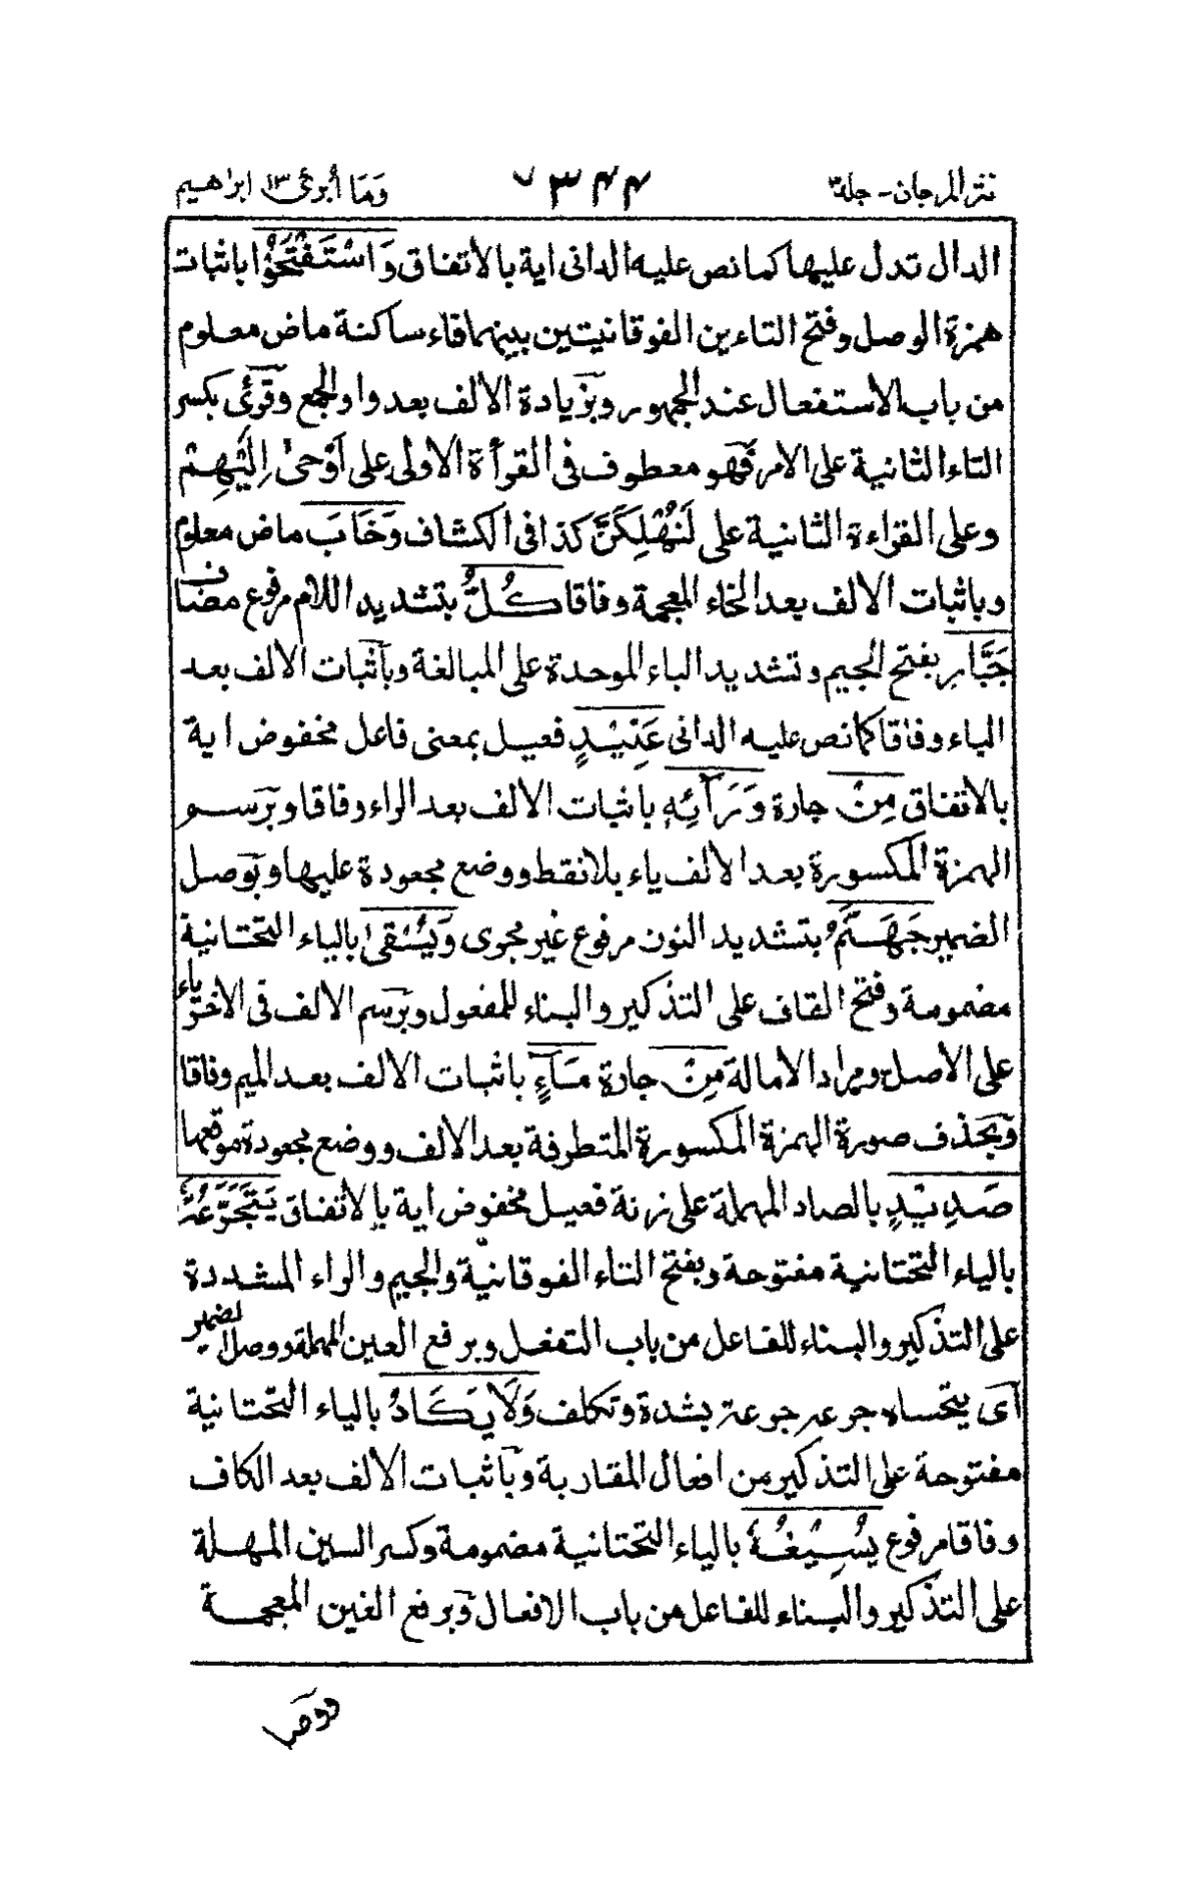 نثر المرجان - جلد۳ ۳۴۴ وَمَا أُبَرِّئُ ۱۳ ابراهيم
الدال تدل عليها كما نص عليه الدانى اية بالاتفاق وَاسْتَفْتَحُوْا باثبات
همزة الوصل وفتح التاءين الفوقانيتين بينهما فاء ساكنة ماض معلوم
من باب الاستفعال عند الجمهور وبزيادة الالف بعد واو الجمع وقرئ بكسر
التاء الثانية على الامر فهو معطوف فى القرأة الاولى على اَوْحىٰ اِلَيْهِمْ
وعلى القراءة الثانية على لَنُهْلِكَنَّ كذا فى الكشاف وَخَابَ ماض معلوم
وباثبات الالف بعد الخاء المعجمة وفاقا كُلُّ بتشديد اللام مرفوع مضاف
جَبَّارٍ بفتح الجيم وتشديد الباء الموحدة على المبالغة وباثبات الالف بعد
الباء وفاقا كما نص عليه الدانى عَنِيْدٍ فعيل بمعنى فاعل مخفوض اية
بالاتفاق مِنْ جارة وَرَآئِهٖ باثبات الالف بعد الراء وفاقا وبرسم
الهمزة المكسورة بعد الالف ياء بلا نقط ووضع مجعودة عليها وبوصل
الضمير جَهَنَّمُ بتشديد النون مرفوع غير مجرى وَيُسْقىٰ بالياء التحتانية
مضمومة وفتح القاف على التذكير والبناء للمفعول وبرسم الالف فى الاخر ياء
على الاصل ومراد الامالة مِنْ جارة مَآءٍ باثبات الالف بعد الميم وفاقا
وبحذف صورة الهمزة المكسورة المتطرفة بعد الالف ووضع مجعودة موقعها
صَدِيْدٍ بالصاد المهملة على زنة فعيل مخفوض اية بالاتفاق يَتَجَرَّعُهٗ
بالياء التحتانية مفتوحة وبفتح التاء الفوقانية والجيم والراء المشددة
على التذكير والبناء للفاعل من باب التفعل وبرفع العين المهملة ووصل الضمير
اى يتحساه جرعة جرعة بشدة وتكلف وَلَا يَكَادُ بالياء التحتانية
مفتوحة على التذكير من افعال المقاربة وباثبات الالف بعد الكاف
وفاقا مرفوع يُسِيْغُهٗ بالياء التحتانية مضمومة وكسر السين المهملة
على التذكير والبناء للفاعل من باب الافعال وبرفع الغين المعجمة